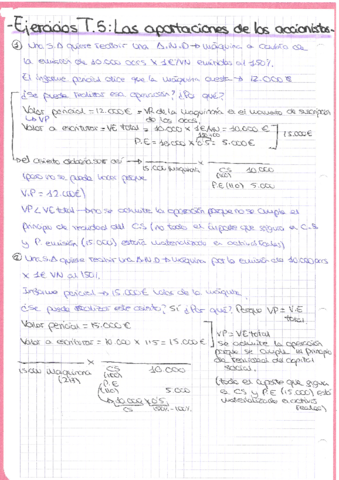 -Ejercicios T.5: Las aportaciones de los accionistas-
① Una S.A quiere recibir una A.N.D → máquina a cambio de
la emisión de 10.000 accs x 1€/VN emitidas al 150%.
El informe pericial dice que la máquina cuesta → 12.000€
¿Se puede realizar esa operación? ¿Por qué?
Valor pericial = 12.000€ = VR de la maquinaria es el momento de suscripción
↳ VP de las accs.
Valor a escriturar = VE total = 10.000 x 1€/VN = 10.000€
P.E = 10.000 x 0'5 = 5.000€
15.000€
x
15.000 maquinaria CS 10.000
(100)
P.E (110) 5.000
(pero no se puede hacer porque
V.P = 12.000€)
VP < VE total → no se admite la aportación porque no se cumple el
principio de realidad del CS (no todo el importe que sigura el C.S
y P. emisión (15.000) estaría materializado en activos reales)
② Una S.A quiere recibir una A.N.D → máquina por la emisión de 10.000 accs
x 1€ VN al 150%.
Informe pericial → 15.000€ valor de la máquina
¿Se puede realizar este asiento? Sí ¿Por qué? Porque VP = V.E
total
Valor pericial = 15.000€
Valor a escriturar = 10.000 x 1'5 = 15.000€
VP = VE total
se admite la aportación
porque se cumple el principio
de realidad del capital
social.
(todo el importe que sigura
el C.S y P.E (15.000) está
materializado en activos
reales)
x
15.000 maquinaria CS 10.000
(213) (100)
P.E
(110) 5.000
↳ 10.000 x 0'5
CS 150% - 100%